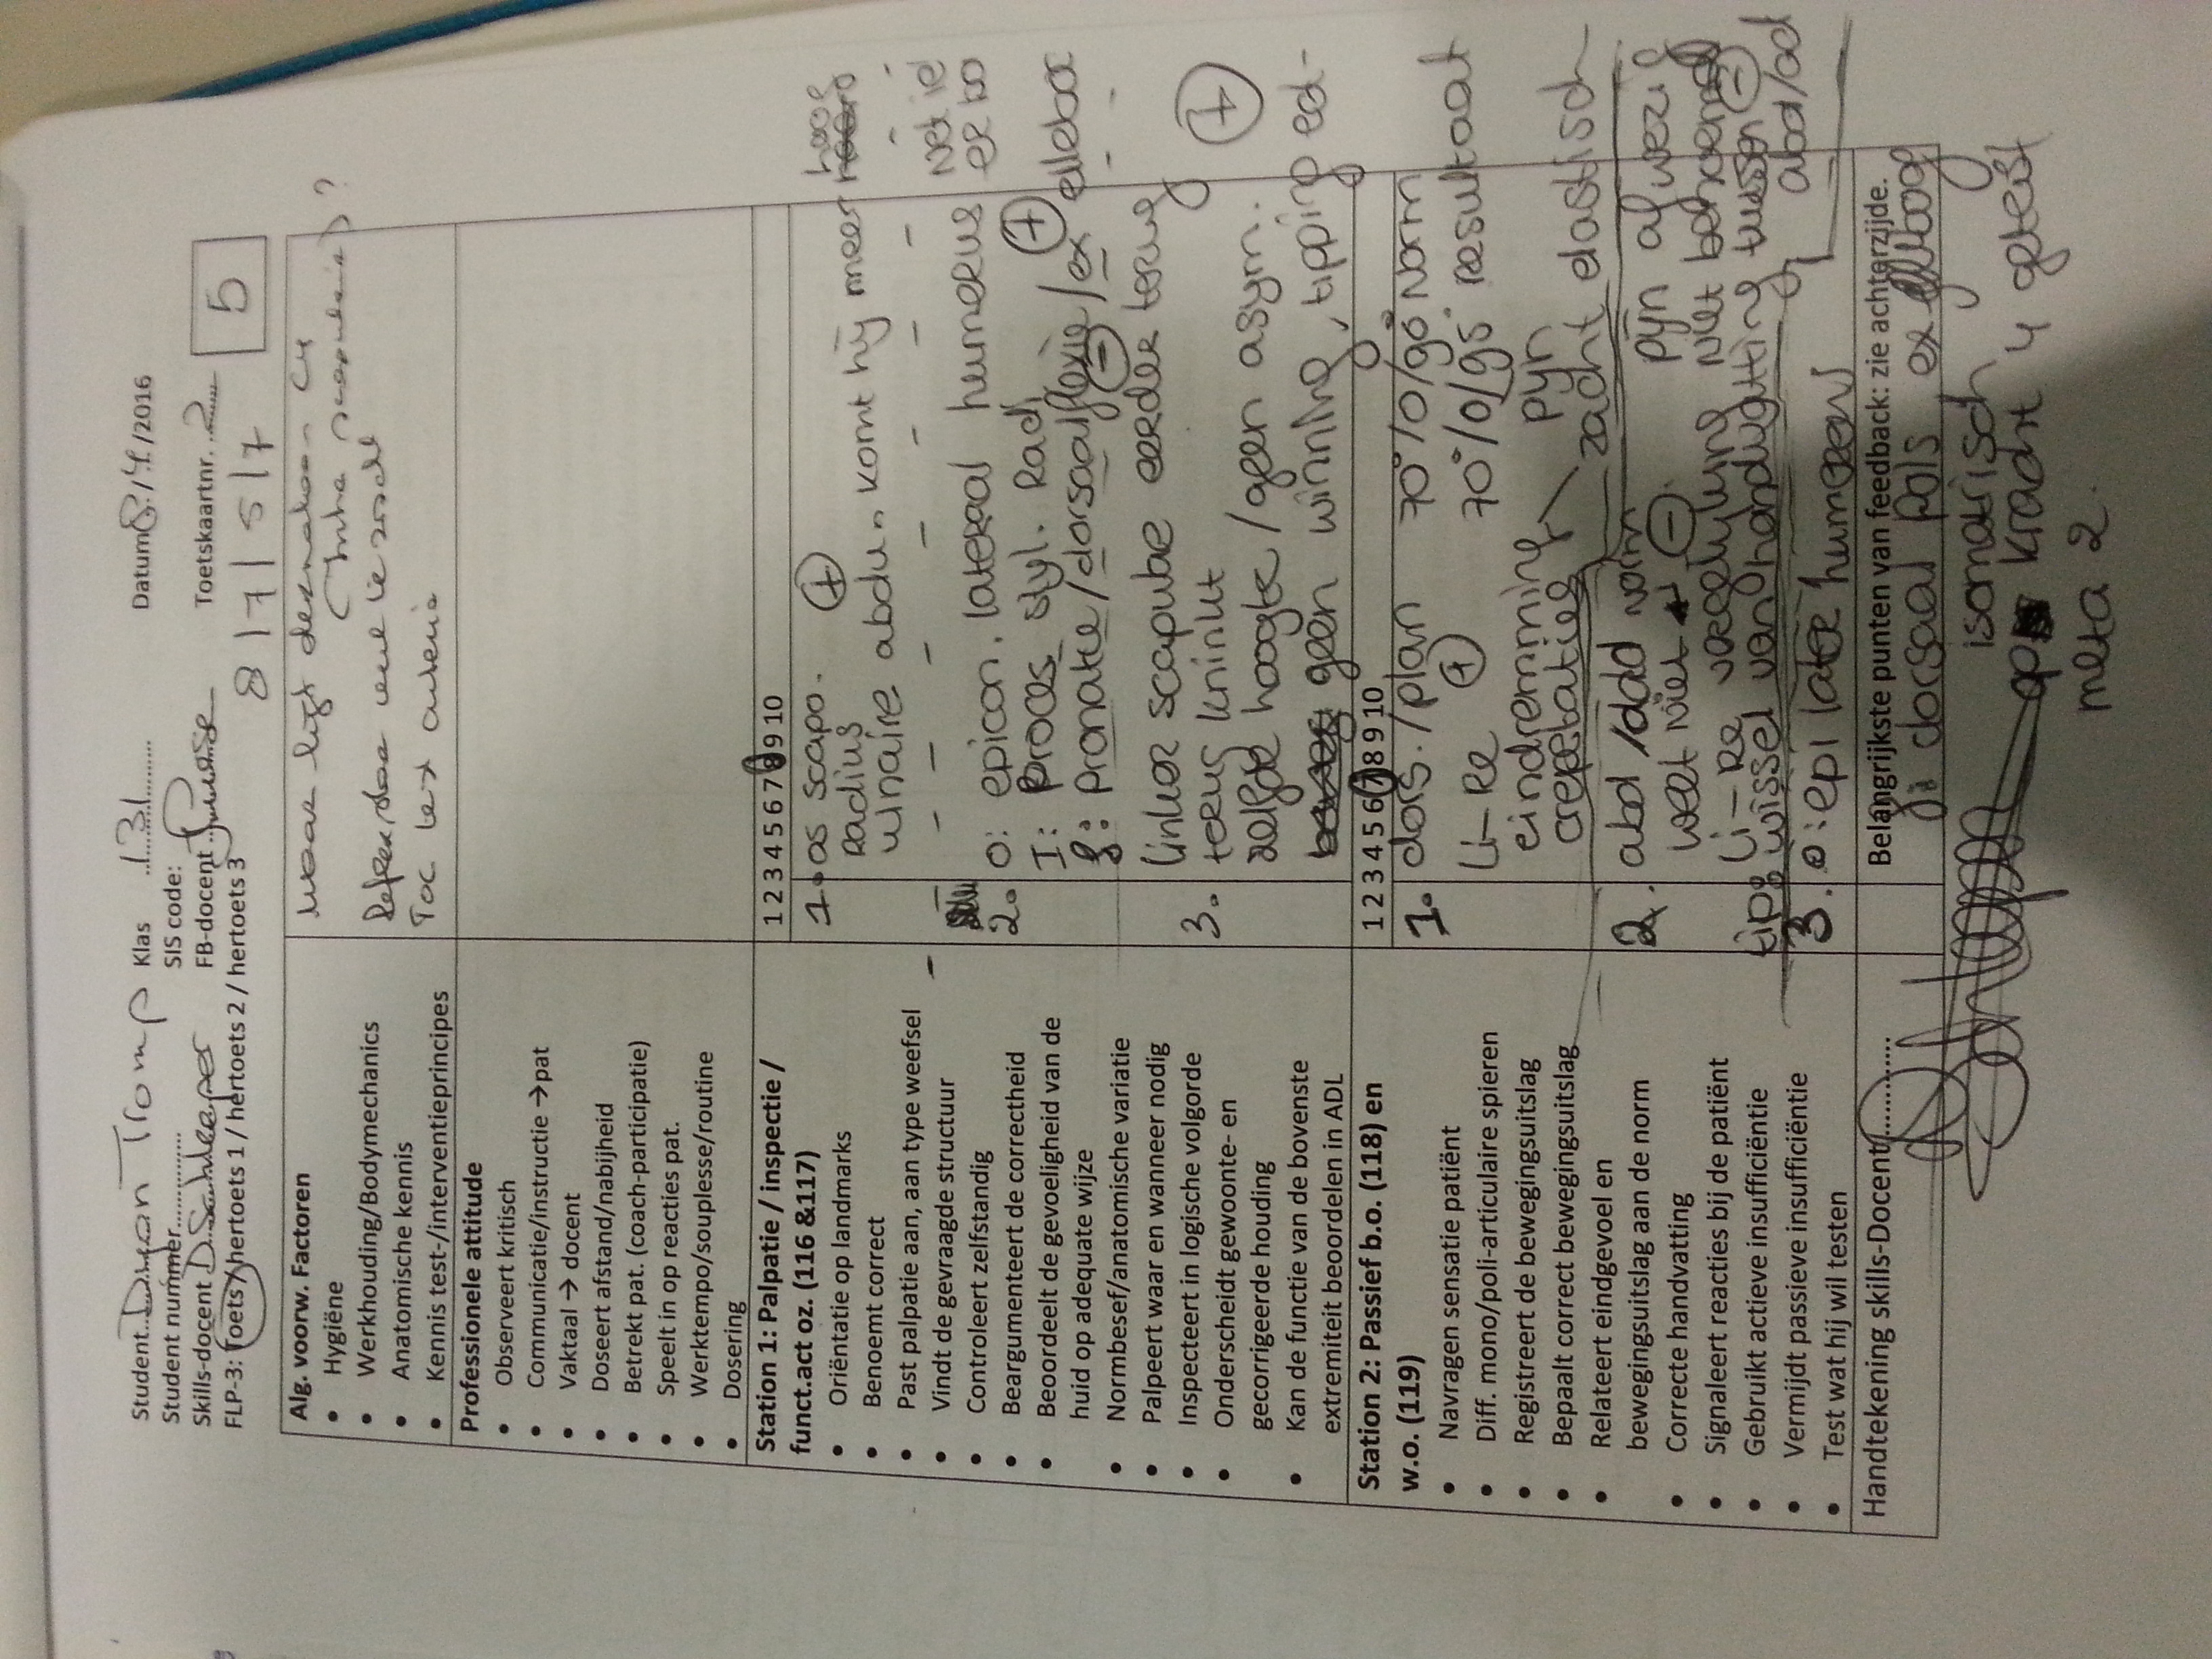 Student Tromp Klas 131
Student nummer SIS code:
Skills-docent FB-docent
FLP-3: Toets / hertoets 1 / hertoets 2 / hertoets 3
Datum 8/4/2016
Toetskaartnr. 2
8/7/5/7
5
Alg. voorw. Factoren
• Hygiëne
• Werkhouding/Bodymechanics
• Anatomische kennis
• Kennis test-/interventieprincipes
waar ligt dermatoom C4
Professionele attitude
• Observeert kritisch
• Communicatie/instructie →pat
• Vaktaal → docent
• Doseert afstand/nabijheid
• Betrekt pat. (coach-participatie)
• Speelt in op reacties pat.
• Werktempo/souplesse/routine
• Dosering
Station 1: Palpatie / inspectie /
funct.act oz. (116 &117)
• Oriëntatie op landmarks
• Benoemt correct
• Past palpatie aan, aan type weefsel
• Vindt de gevraagde structuur
• Controleert zelfstandig
• Beargumenteert de correctheid
• Beoordeelt de gevoeligheid van de
huid op adequate wijze
• Normbesef/anatomische variatie
• Palpeert waar en wanneer nodig
• Inspecteert in logische volgorde
• Onderscheidt gewoonte- en
gecorrigeerde houding
• Kan de functie van de bovenste
extremiteit beoordelen in ADL
1 2 3 4 5 6 7 8 9 10
1. os scapo. +
radius
ulnaire abdu. komt hij meer
2. O: epicon. lateraal humerus
I: Proces styl. Rad +
F: pronatie/dorsaalflexie/ex elleboog
3. linker scapulae eerder terug
zelfde hoogte / geen asym. +
geen winning, tipping ed-
Station 2: Passief b.o. (118) en
w.o. (119)
• Navragen sensatie patiënt
• Diff. mono/poli-articulaire spieren
• Registreert de bewegingsuitslag
• Bepaalt correct bewegingsuitslag
• Relateert eindgevoel en
bewegingsuitslag aan de norm
• Correcte handvatting
• Signaleert reacties bij de patiënt
• Gebruikt actieve insufficiëntie
• Vermijdt passieve insufficiëntie
• Test wat hij wil testen
1 2 3 4 5 6 7 8 9 10
1. dors./plan 70°/0/90° Norm
Li-Re + 70°/0/95° resultaat
eindremming pyn
crepitaties zacht elastisch
2. abd/add norm pyn afwezig
weet niet - niet
Li-Re vergelijking
tip: wissel van handvatting tussen abd/ad
3. O: epi later humerus
Handtekening skills-Docent
Belangrijkste punten van feedback: zie achterzijde.
dorsaal pols ex elboog
isometrisch
op kracht 4 getest
meta 2.